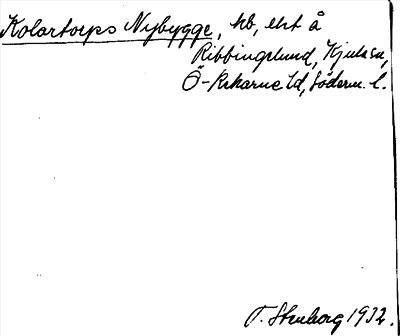 Kolartorps Nybygge, hb, ext å
Ribbingelund, Kjula sn,
Ö-Rekarne hd, Söderm. l.
T. Stenborg 1932.